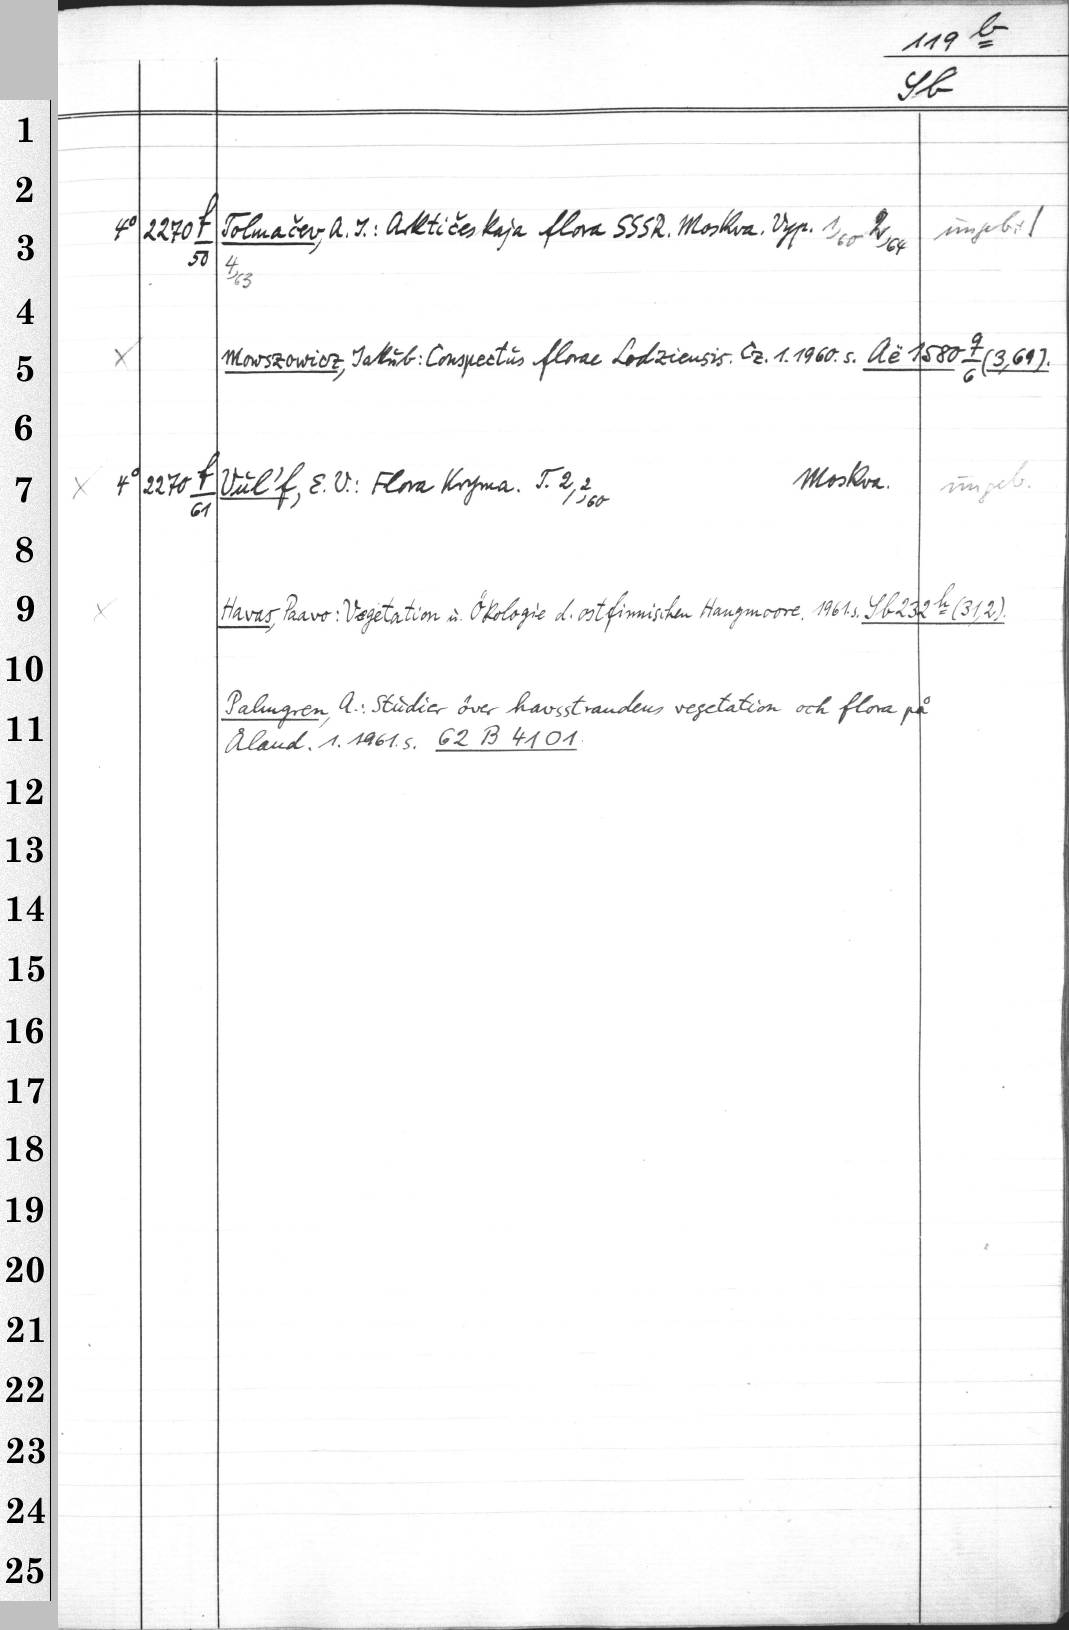 119 b
Sb
1
2
3
4° 2270 f/50 Tolmačev, A. I.: Arktičeskaja flora SSSR. Moskva. Vyp. 1,60 2,64 ungeb.
4,63
4
5
Mowszowicz, Jakub: Conspectus florae Lodziensis. Cz. 1. 1960. s. Aë 1580 q/6 (3,69).
6
7
x 4° 2270 f/61 Vul'f, E. V.: Flora Kryma. T. 2,2,60 Moskva. ungeb.
8
9
x Havas, Paavo: Vegetation u. Ökologie d. ostfinnischen Hangmoore. 1961. s. Sb 232 h (31,2).
10
11
Palmgren, A.: Studier över havsstrandens vegetation och flora på
Åland. 1. 1961. s. 62 B 4101.
12
13
14
15
16
17
18
19
20
21
22
23
24
25